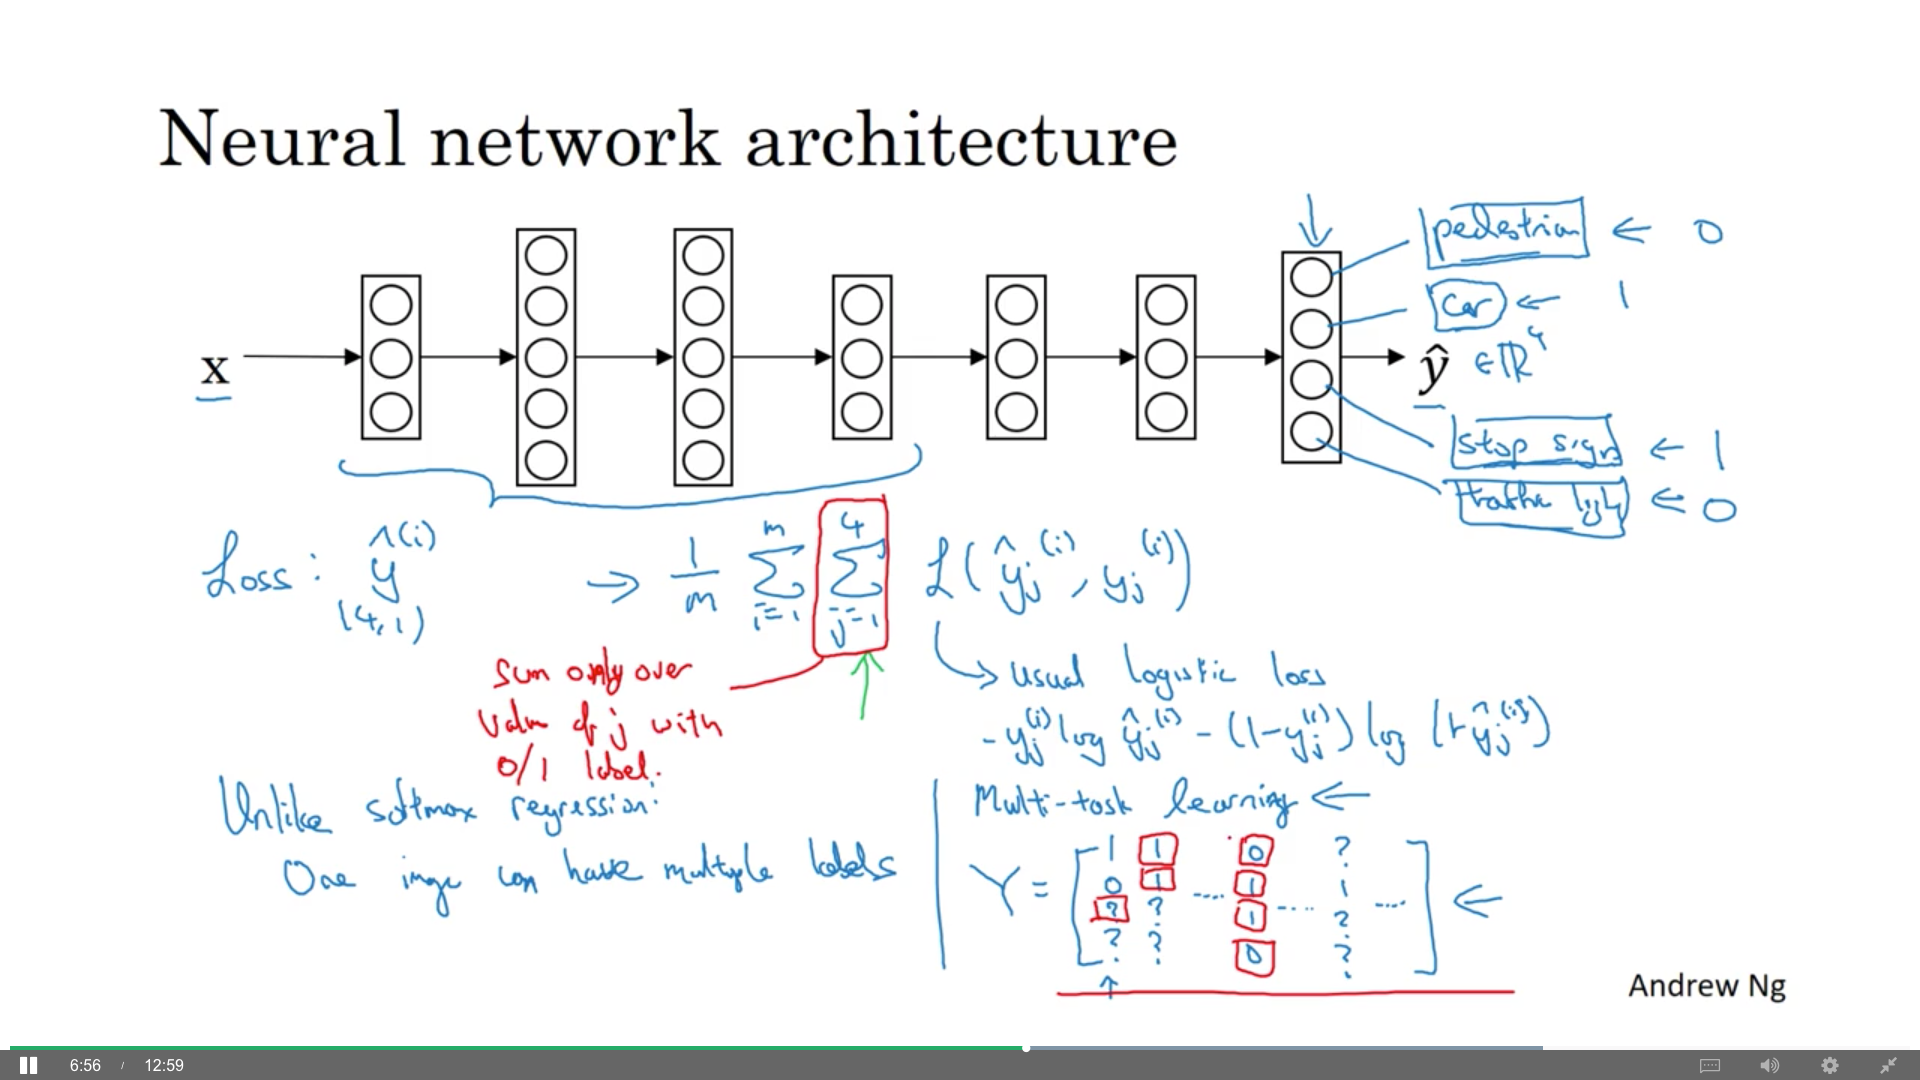 Neural network architecture
pedestrian ← 0
car ← 1
x
ŷ ∈ ℝ⁴
stop sign ← 1
traffic light ← 0
Loss: ŷ^(i) → 1/m ∑_{i=1}^{m} ∑_{j=1}^{4} L(ŷ_j^(i), y_j^(i))
(4,1)
sum only over
value of j with
0/1 label.
→ usual logistic loss
- y_j^(i) log ŷ_j^(i) - (1-y_j^(i)) log (1-ŷ_j^(i))
Unlike softmax regression:
One image can have multiple labels
Multi-task learning ←
Y = [ 1 1 0 ?
0 1 .... 1 .... 1 .... ] ←
? ? 1 ?
? ? 0 ?
Andrew Ng
6:56 / 12:59